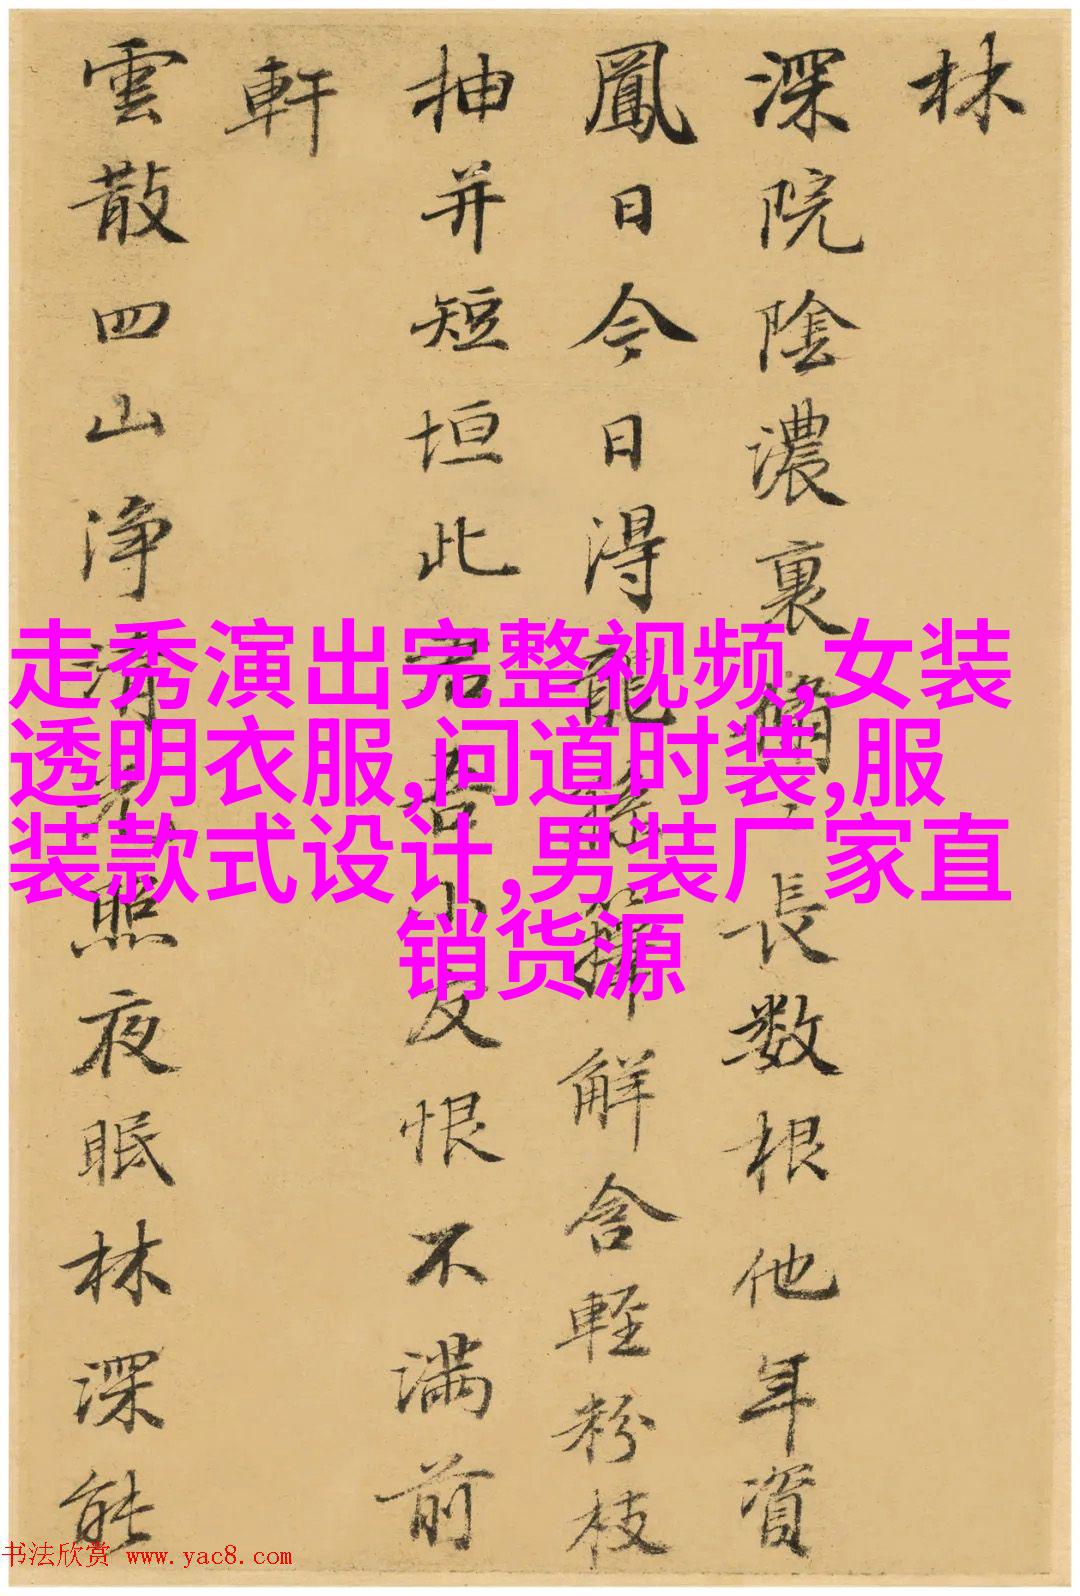 林
深院陰濃裏脩〻長数根他年資
鳳日今日得龍孫籜解含軽粉枝
抽并短垣此君吾小友恨不満前
軒
雲散四山净清光照夜眠林深能
走秀演出完整视频,女装
透明衣服,问道时装,服
装款式设计,男装厂家直
销货源
书法欣赏 www.yac8.com